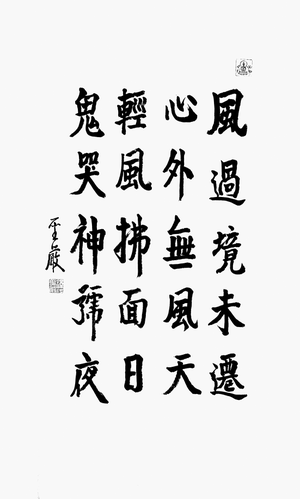 風過境未遷
心外無風天
輕風拂面日
鬼哭神號夜
聖嚴